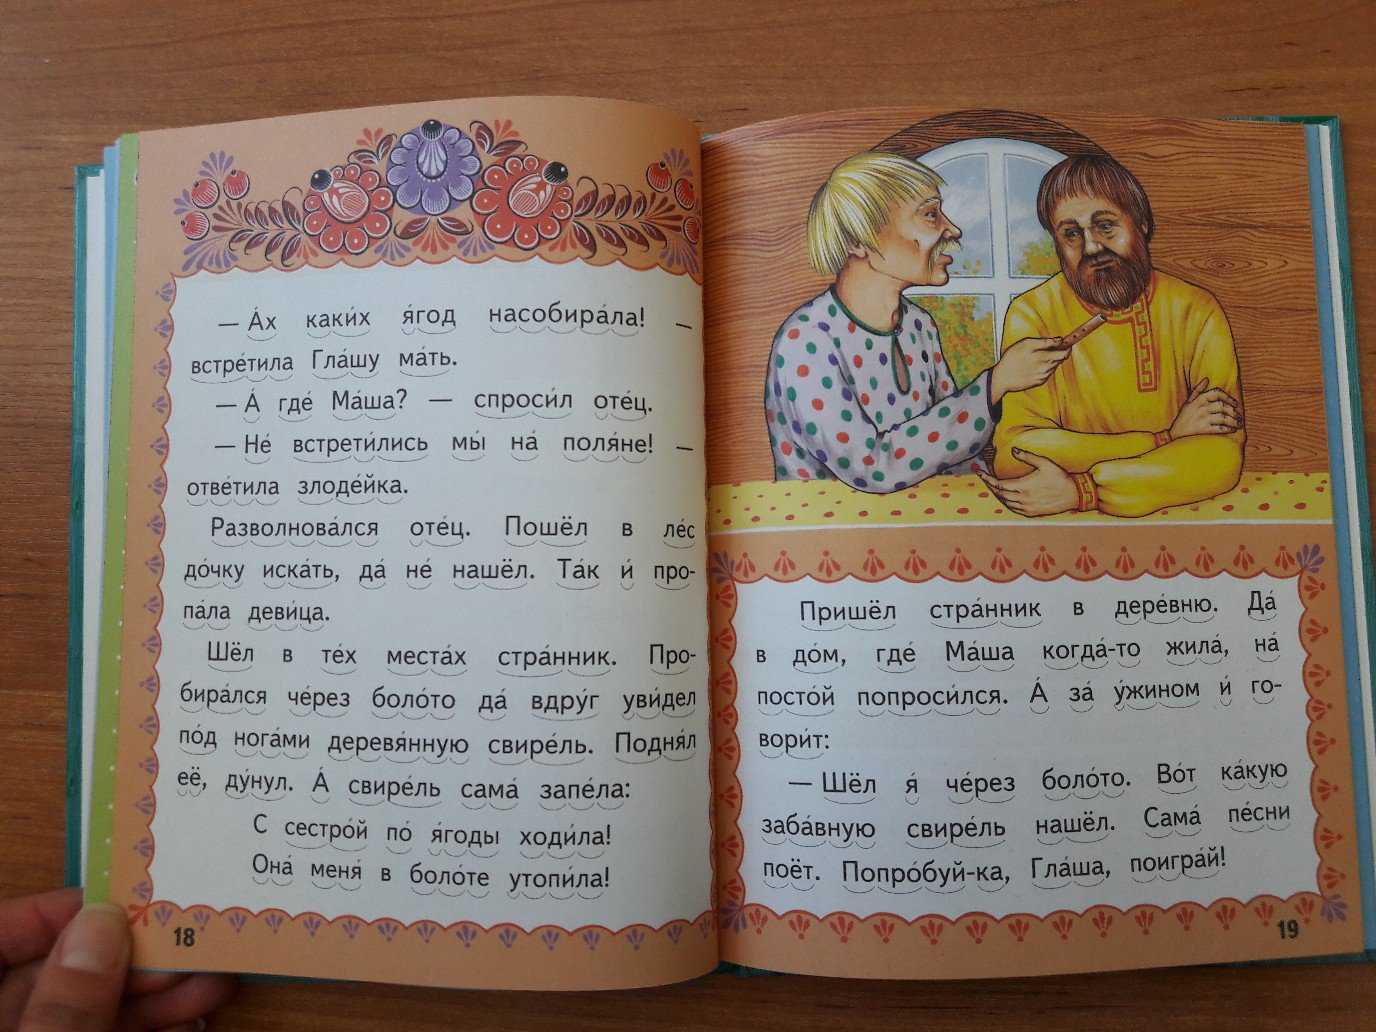 — А́х каки́х я́год насобира́ла! —
встре́тила Гла́шу ма́ть.
— А́ где́ Ма́ша? — спроси́л оте́ц.
— Не́ встрети́лись мы́ на́ поля́не! —
отве́тила злоде́йка.
Разволнова́лся оте́ц. Пошёл в ле́с
до́чку иска́ть, да́ не́ нашёл. Та́к и́ про-
па́ла деви́ца.
Шёл в те́х места́х стра́нник. Про-
бира́лся че́рез боло́то да́ вдру́г уви́дел
по́д нога́ми деревя́нную свире́ль. Подня́л
её, ду́нул. А́ свире́ль сама́ запе́ла:
С сестро́й по́ я́годы ходи́ла!
Она́ меня́ в боло́те утопи́ла!
18
Пришёл стра́нник в дере́вню. Да́
в до́м, где́ Ма́ша когда́-то жила́, на́
посто́й попроси́лся. А́ за́ у́жином и́ го-
вори́т:
— Шёл я́ че́рез боло́то. Во́т ка́кую
заба́вную свире́ль нашёл. Сама́ пе́сни
поёт. Попро́буй-ка, Гла́ша, поигра́й!
19